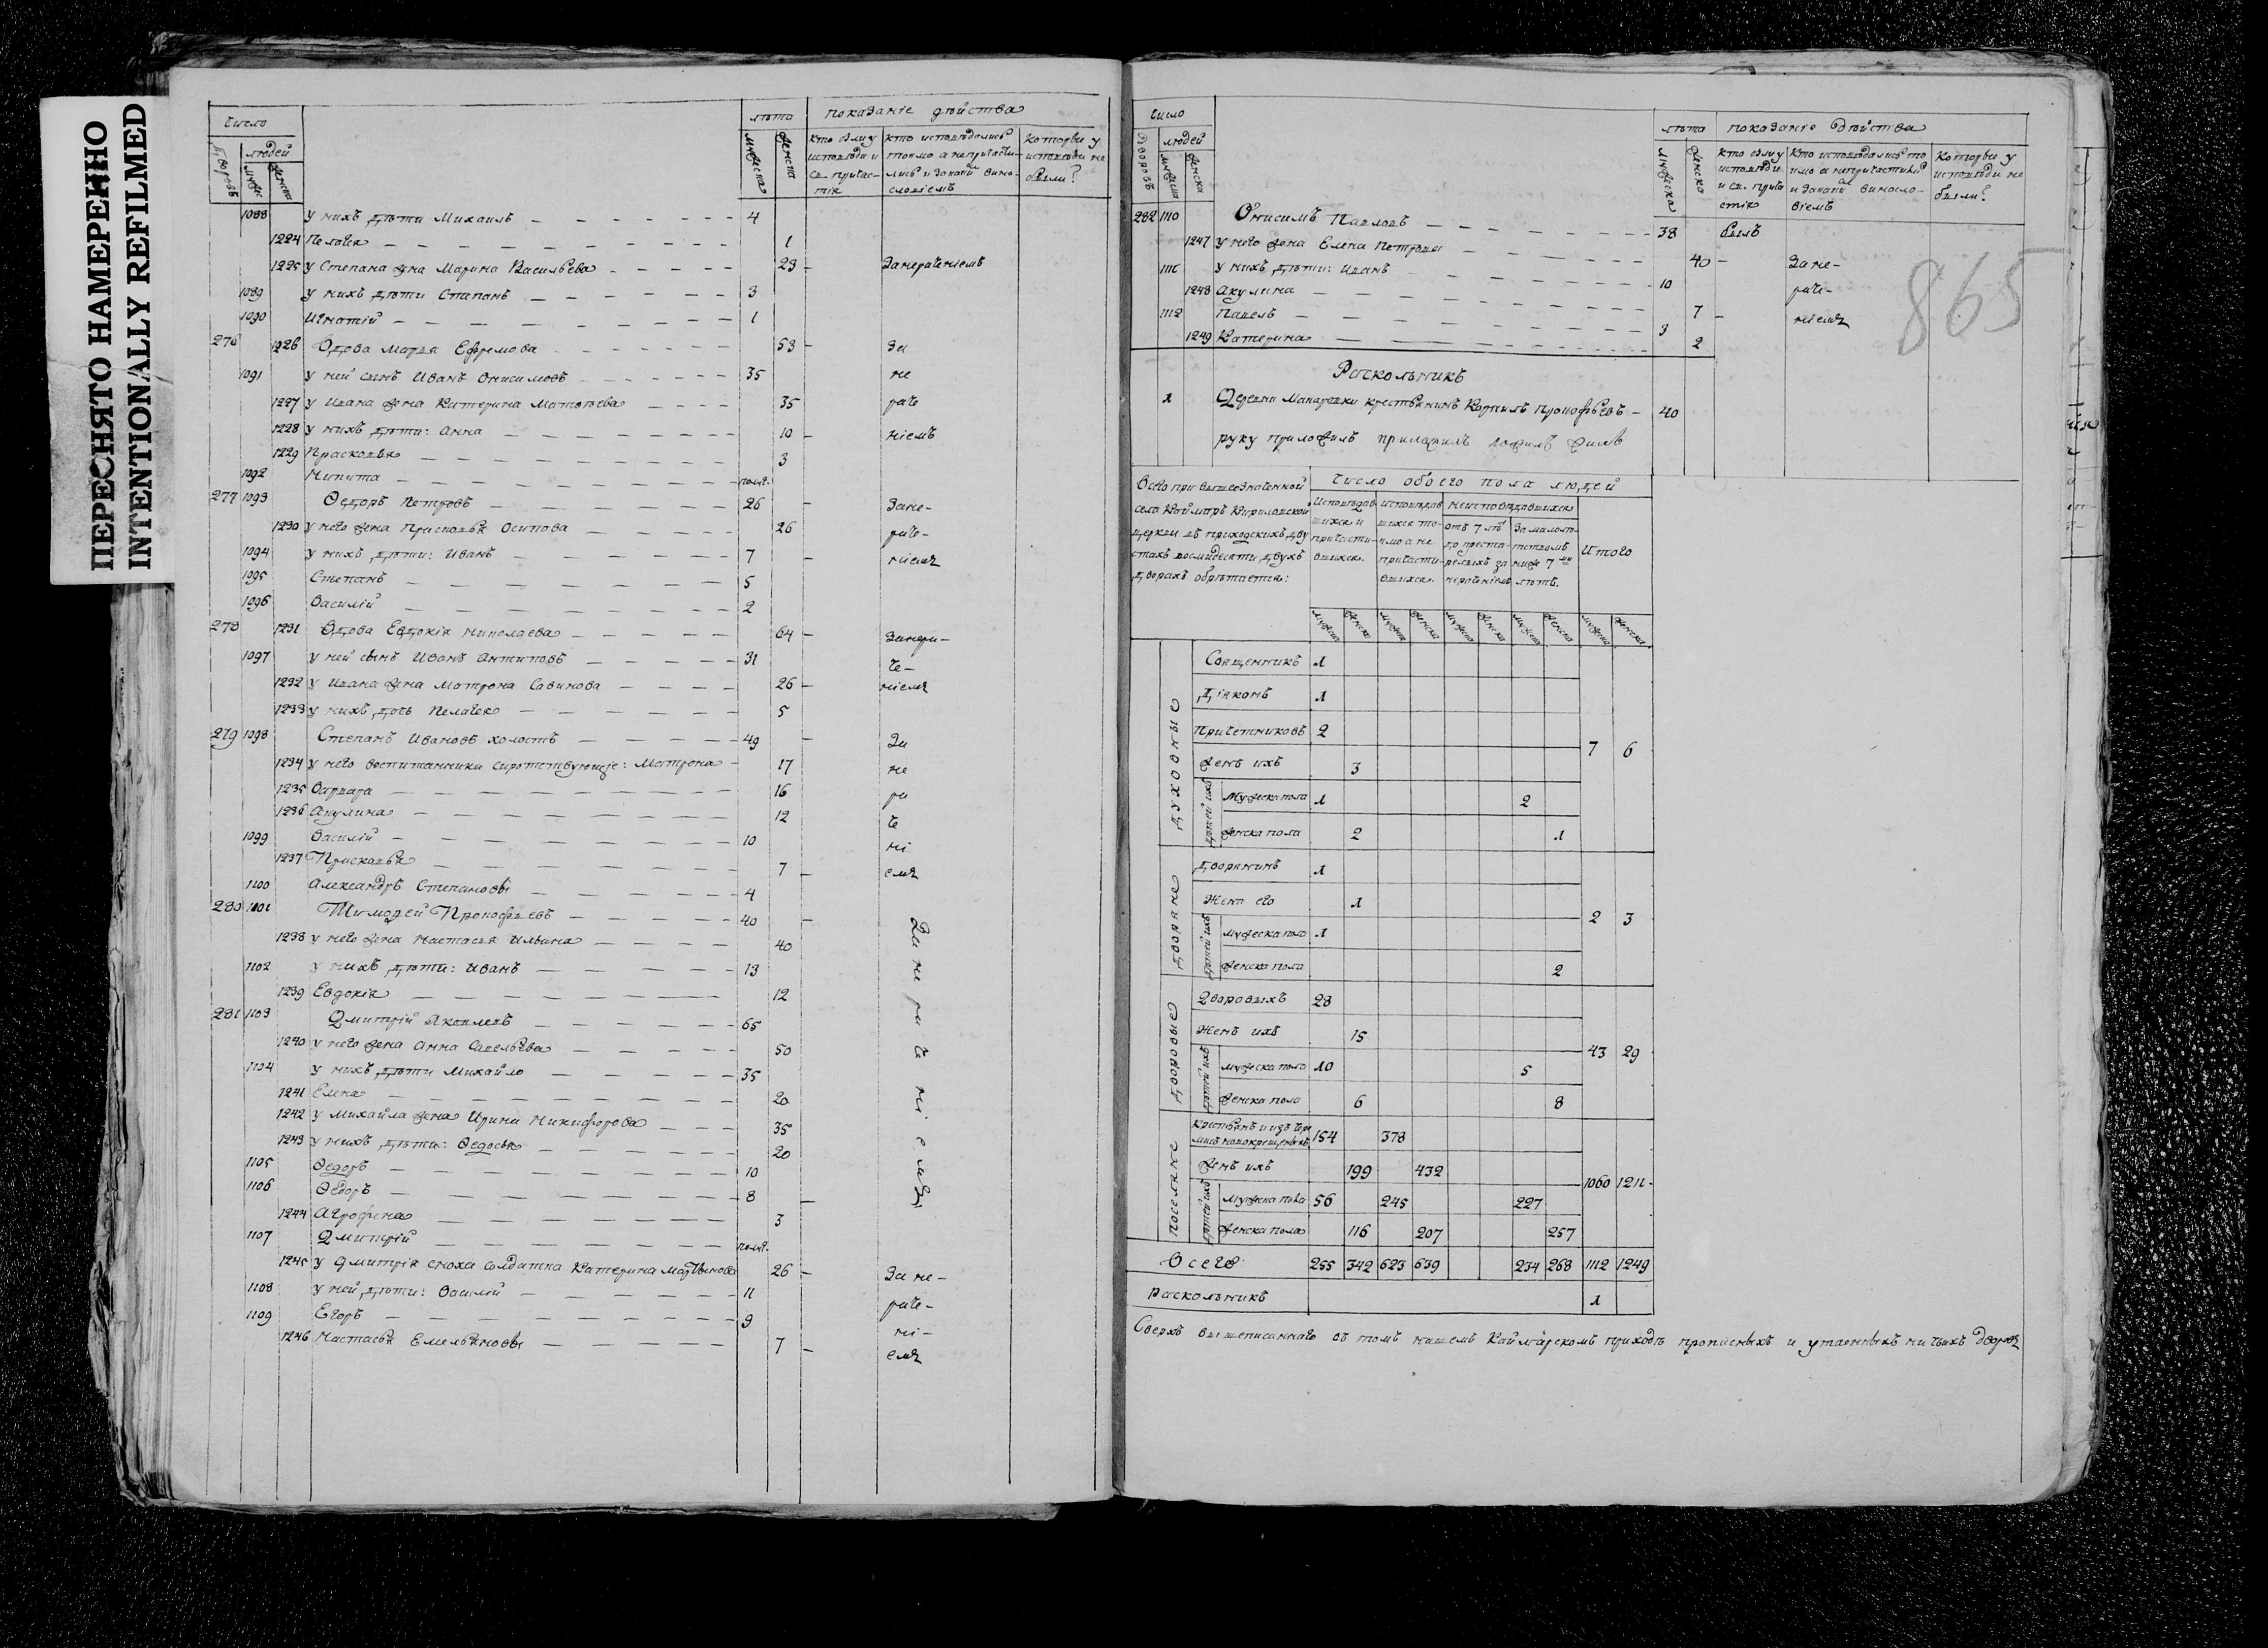 ПЕРЕСНЯТО НАМЕРЕННО
INTENTIONALLY REFILMED
Число
лѣта показаніе дѣйства
Дворовъ людей мужеска женска
кто были у исповѣди и св. причастія
кто исповѣдались токмо а непричастились и закакимъ винословіемъ
которыи у исповѣди не были?
1088 у нихъ дѣти Михаилъ 4
1224 Пелагея 1
1225 у Степана жена Марина Васильева 23 Занераченіемъ
1089 у нихъ дѣти Степанъ 3
1090 Игнатій 1
276 1226 Вдова Марья Ефремова 53 За
1091 у ней сынъ Иванъ Онисимовъ 35 не
1227 у Ивана жена Катерина Матвѣева 35 раче
1228 у нихъ дѣти: Анна 10 ніемъ
1229 Прасковья 3
1092 Никита полг.
277 1093 Ѳедоръ Петровъ 26 Зане-
1230 у него жена Прасковья Осипова 26 раче-
1094 у нихъ дѣти: Иванъ 7 ніемъ
1095 Степанъ 5
1096 Василій 2
278 1231 Вдова Евдокія Николаева 64 Занера-
1097 у ней сынъ Иванъ Антиповъ 31 че-
1232 у Ивана жена Матрона Савинова 26 ніемъ
1233 у нихъ дочь Пелагея 5
279 1098 Степанъ Ивановъ холостъ 49 За
1234 у него воспитанники сиротствующіе: Матрона 17 не
1235 Варвара 16 ра
1236 Акулина 12 че
1099 Василій 10 ні
1237 Прасковья 7 емъ
1100 Александръ Степановы 4
280 1101 Тимоѳей Прокофьевъ 40 Занераченіемъ
1238 у него жена Настасья Ильина 40
1102 у нихъ дѣти: Иванъ 13
1239 Евдокія 12
281 1103 Дмитрій Яковлевъ 65
1240 у него жена Анна Савельева 50
1104 у нихъ дѣти Михайло 35
1241 Елена 20
1242 у Михайла жена Ирина Никифорова 35
1243 у нихъ дѣти: Ѳедосья 20
1105 Ѳедоръ 10
1106 Ѳедоръ 8
1244 Агрофена 3
1107 Дмитрій полг.
1245 у Дмитрія сноха солдатка Катерина 26 Зане-
1108 у ней дѣти: Василій 11 раче-
1109 Егоръ 9 ні-
1246 Настасья Емельяновы 7 емъ
Число
лѣта показаніе дѣйства
Дворовъ людей мужеска женска
кто были у исповѣди и св. причастія
Кто исповѣдались токмо а непричастились и закакимъ винословіемъ
Которыи у исповѣди не были?
865
282 1110 Онисимъ Павловъ 38 былъ
1247 у него жена Елена Петрова 40 Зане-
1111 у нихъ дѣти: Иванъ 10
1248 Акулина 7 раче-
1112 Павелъ 3 ніемъ
1249 Катерина 2
Раскольникъ
1 Деревни Макаровки крестьянинъ Корнилъ Прокофьевъ 40
руку приложилъ приложилъ ложилъ жилъ
Всего при вышеозначенной
села Каймаръ Кириловской
церкви въ приходскихъ дву
стахъ восмидесяти двухъ
дворахъ обрѣтается:
Число обоего пола людей
Исповѣдавшихся и причастившихся.
исповѣдавшихся токмо а не причастившихся.
неисповѣдавшихся
отъ 7 лѣтъ до престарелыхъ за нераченіемъ
За малолѣтствомъ ниже 7ми лѣтъ.
Итого
мужеска женска мужеска женска мужеска женска мужеска женска мужеска женска
Духовные
Священникъ 1
Діаконъ 1
Причетниковъ 2
7 6
Женъ ихъ 3
дѣтей ихъ
Мужеска пола 1 2
женска пола 2 1
Дворяне
Дворянинъ 1
Жена его 1
2 3
дѣтей ихъ
мужеска пола 1
женска пола 2
Дворовые
Дворовыхъ 28
Женъ ихъ 15
43 29
дѣтей ихъ
мужеска пола 10 5
женска пола 6 8
поселяне
крестьянъ и изъ новокрещеныхъ 154 378
женъ ихъ 199 432
1060 1211
дѣтей ихъ
мужеска пола 56 245 227
женска пола 116 207 257
Всего 255 342 623 639 234 268 1112 1249
Раскольникъ 1
Сверхъ вышеписаннаго въ томъ нашемъ Каймарскомъ приходѣ прописныхъ и утаенныхъ ничьихъ дворовъ